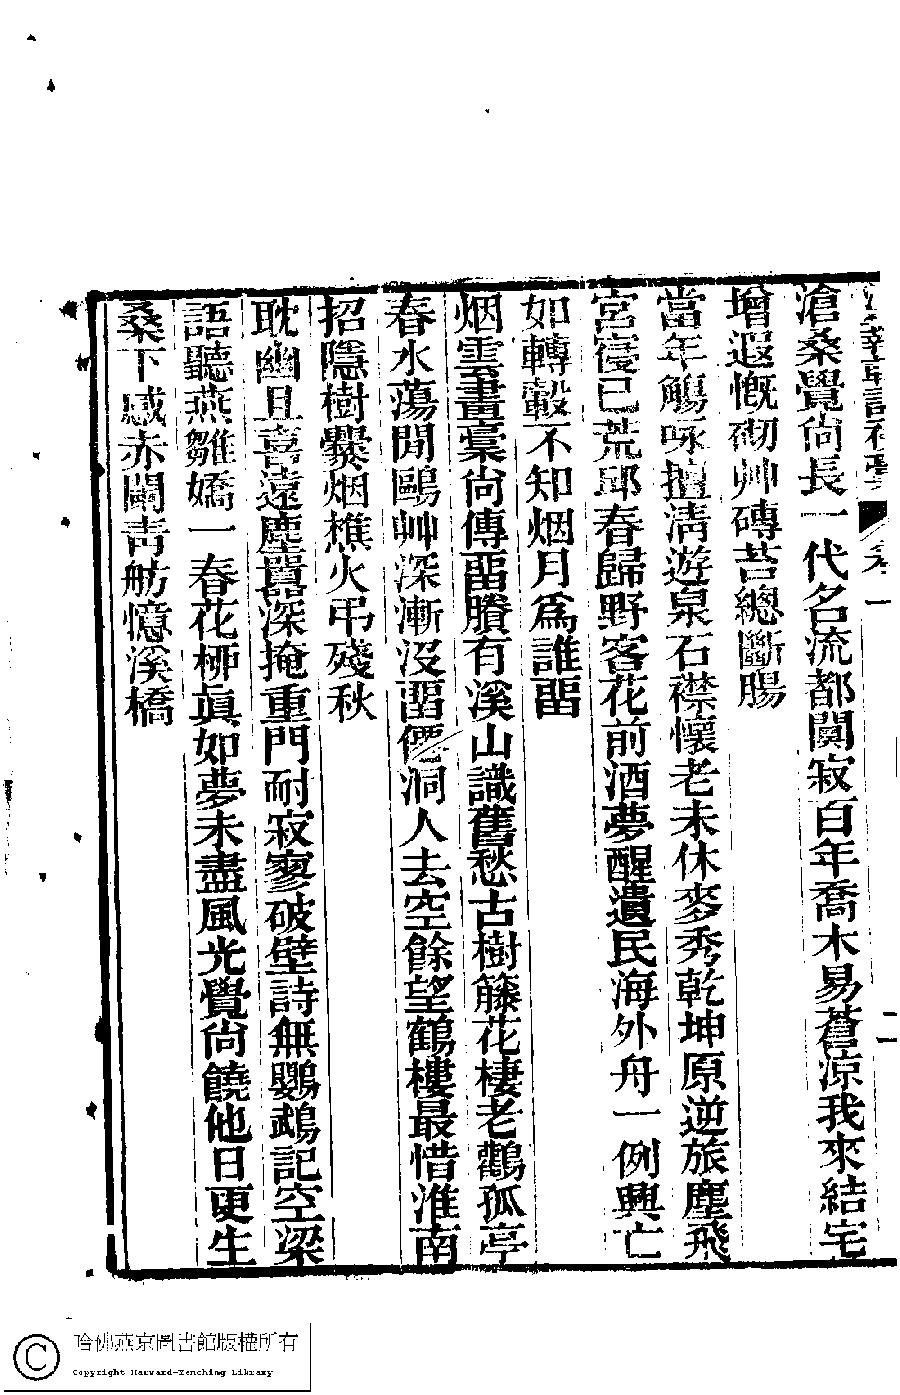 卷一
二
滄桑覺尙長一代名流都闃寂百年喬木易蒼涼我來結宅
增遐慨砌艸磚苔總斷腸
當年觴咏擅淸遊泉石襟懷老未休麥秀乾坤原逆旅塵飛
宮寑已荒邱春歸野客花前酒夢醒遺民海外舟一例興亡
如轉轂不知烟月爲誰畱
烟雲畫稾尙傳畱賸有溪山識舊愁古樹籐花棲老鸛孤亭
春水蕩閒鷗艸深漸沒畱僊洞人去空餘望鶴樓最惜淮南
招隱樹爨烟樵火弔殘秋
耽幽且喜遠塵囂深掩重門耐寂寥破壁詩無鸚鵡記空梁
語聽燕雛嬌一春花柳眞如夢未盡風光覺尙饒他日更生
桑下感赤闌靑舫憶溪橋
哈佛燕京圖書館版權所有
Copyright Harvard-Yenching Library